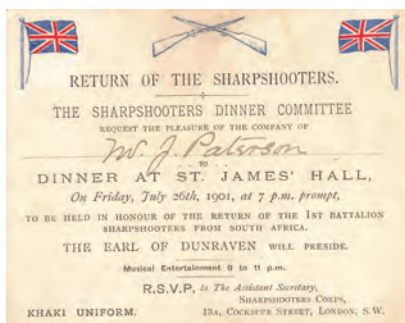 RETURN OF THE SHARPSHOOTERS.
THE SHARPSHOOTERS DINNER COMMITTEE
REQUEST THE PLEASURE OF THE COMPANY OF
W. J. Paterson
TO
DINNER AT ST. JAMES' HALL,
On Friday, July 26th, 1901, at 7 p.m. prompt,
TO BE HELD IN HONOUR OF THE RETURN OF THE 1ST BATTALION
SHARPSHOOTERS FROM SOUTH AFRICA.
THE EARL OF DUNRAVEN WILL PRESIDE.
Musical Entertainment 9 to 11 p.m.
R.S.V.P. to The Assistant Secretary,
SHARPSHOOTERS CORPS,
KHAKI UNIFORM. 13A, COCKSPUR STREET, LONDON, S.W.